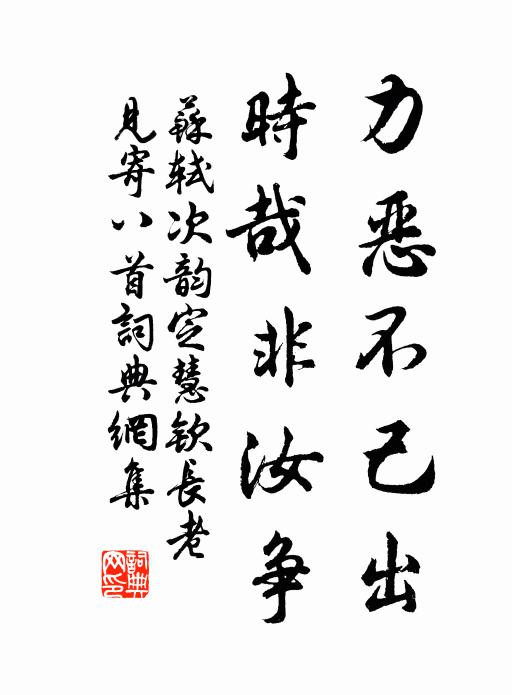 力恶不己出
時哉非汝争
蘇軾次韵定慧欽長老
見寄八首詞典網集
詞典
网印